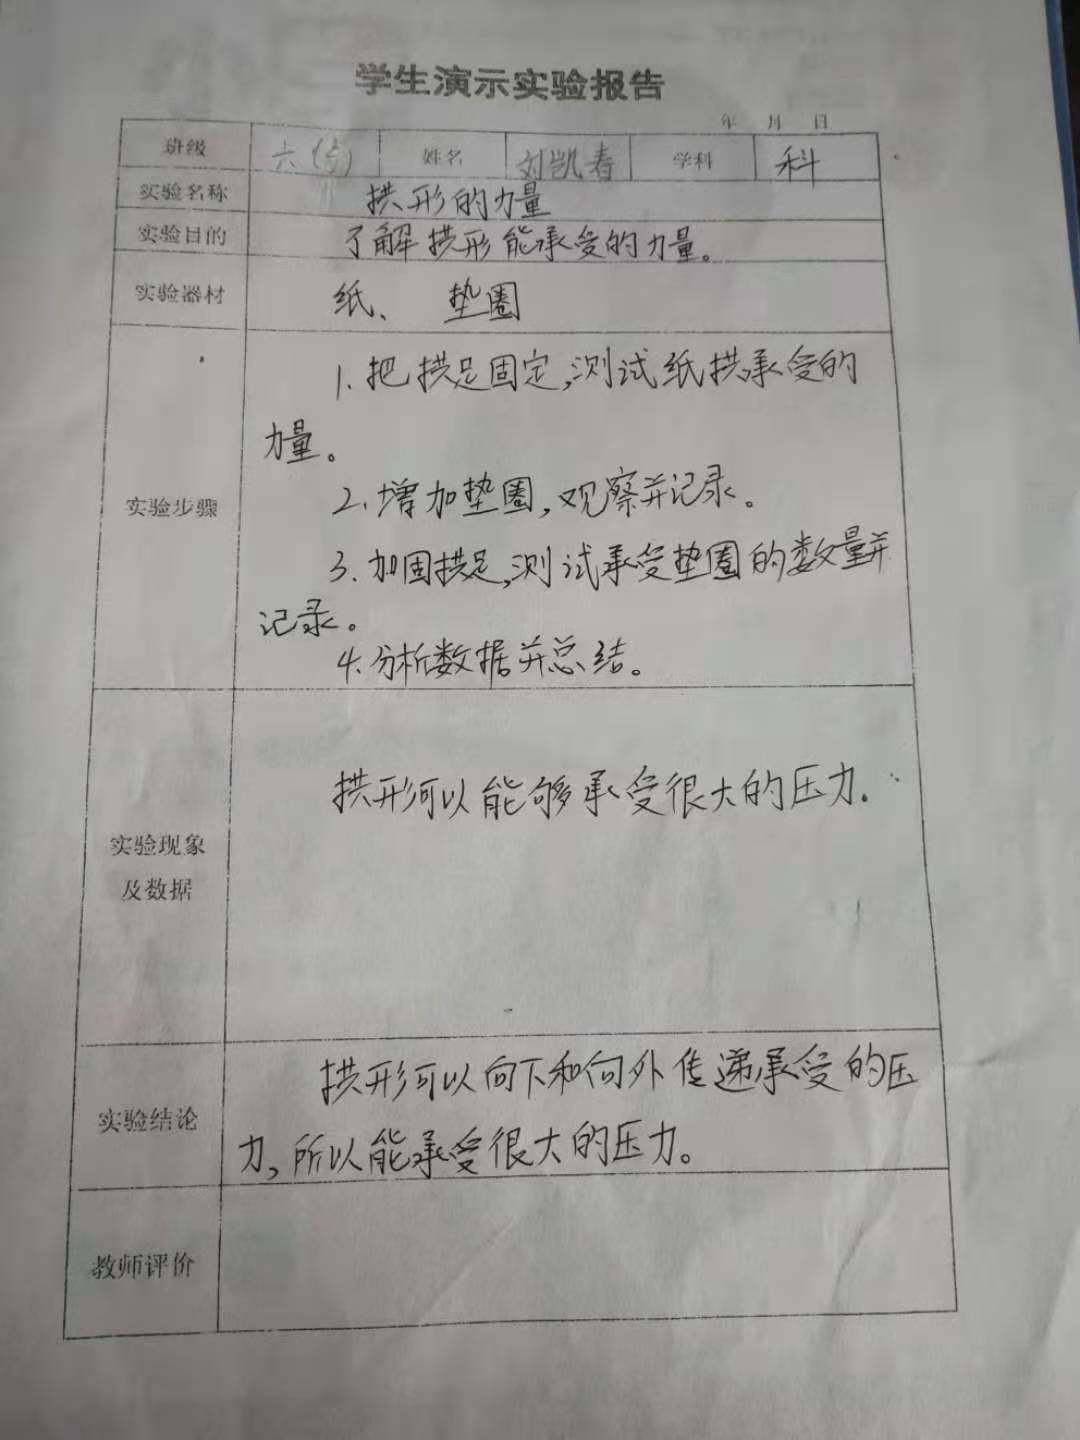 学生演示实验报告
年 月 日
班级 六(5) 姓名 刘凯春 学科 科
实验名称 拱形的力量
实验目的 了解拱形能承受的力量。
实验器材 纸、 垫圈
1.把拱足固定,测试纸拱承受的
力量。
实验步骤 2.增加垫圈,观察并记录。
3.加固拱足,测试承受垫圈的数量并
记录。
4.分析数据并总结。
拱形可以能够承受很大的压力.
实验现象
及数据
拱形可以向下和向外传递承受的压
实验结论
力,所以能承受很大的压力。
教师评价